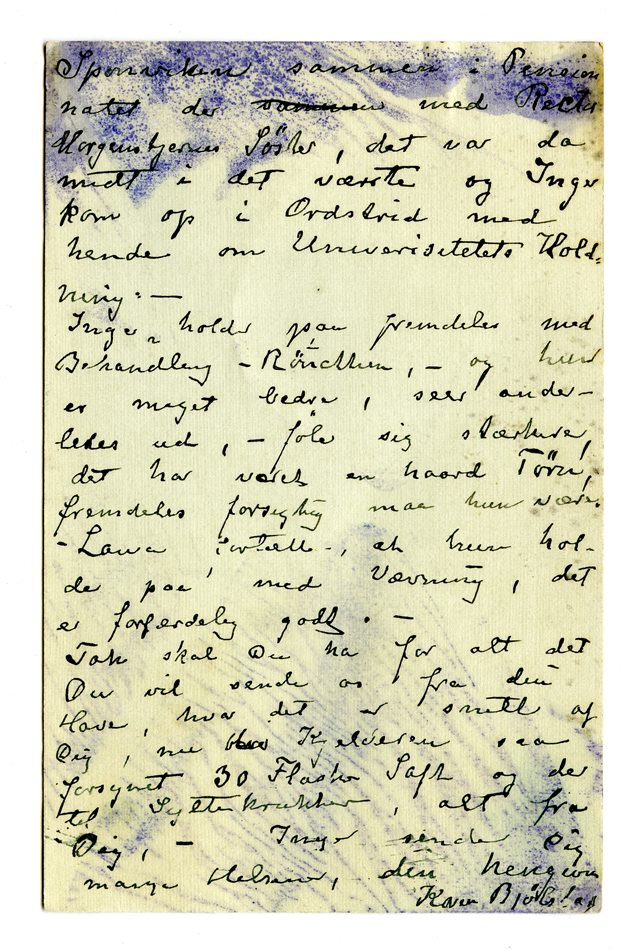 Sponviken sammen i Pension
natet der sammen med Rects
Morgenstjernes Söster, det var da
midt i det værste og Inger
kom op i Ordstrid med
hende om Univerisitetets Hold=
ning. —
Inger holder paa fremdeles med
Behandling - Röntken, - og hun
er meget bedre, seer ander-
ledes ud, - föler sig stærkere,
det har været en haard Törn,
fremdeles forsigtig maa hun være.
- Laura fortæller, at hun hol-
der paa med Vævning, det
er forfærdelig godt. —
Tak skal Du ha for alt det
Du vil sende os fra din
Have, hvor det er snilt af
Dig, nu Kjelderen saa
forsynet 30 Flasker Saft og der
til Syltekrukker, alt fra
Dig, - Inger sender Dig
mange Hilsener, - din hengivne
Karen